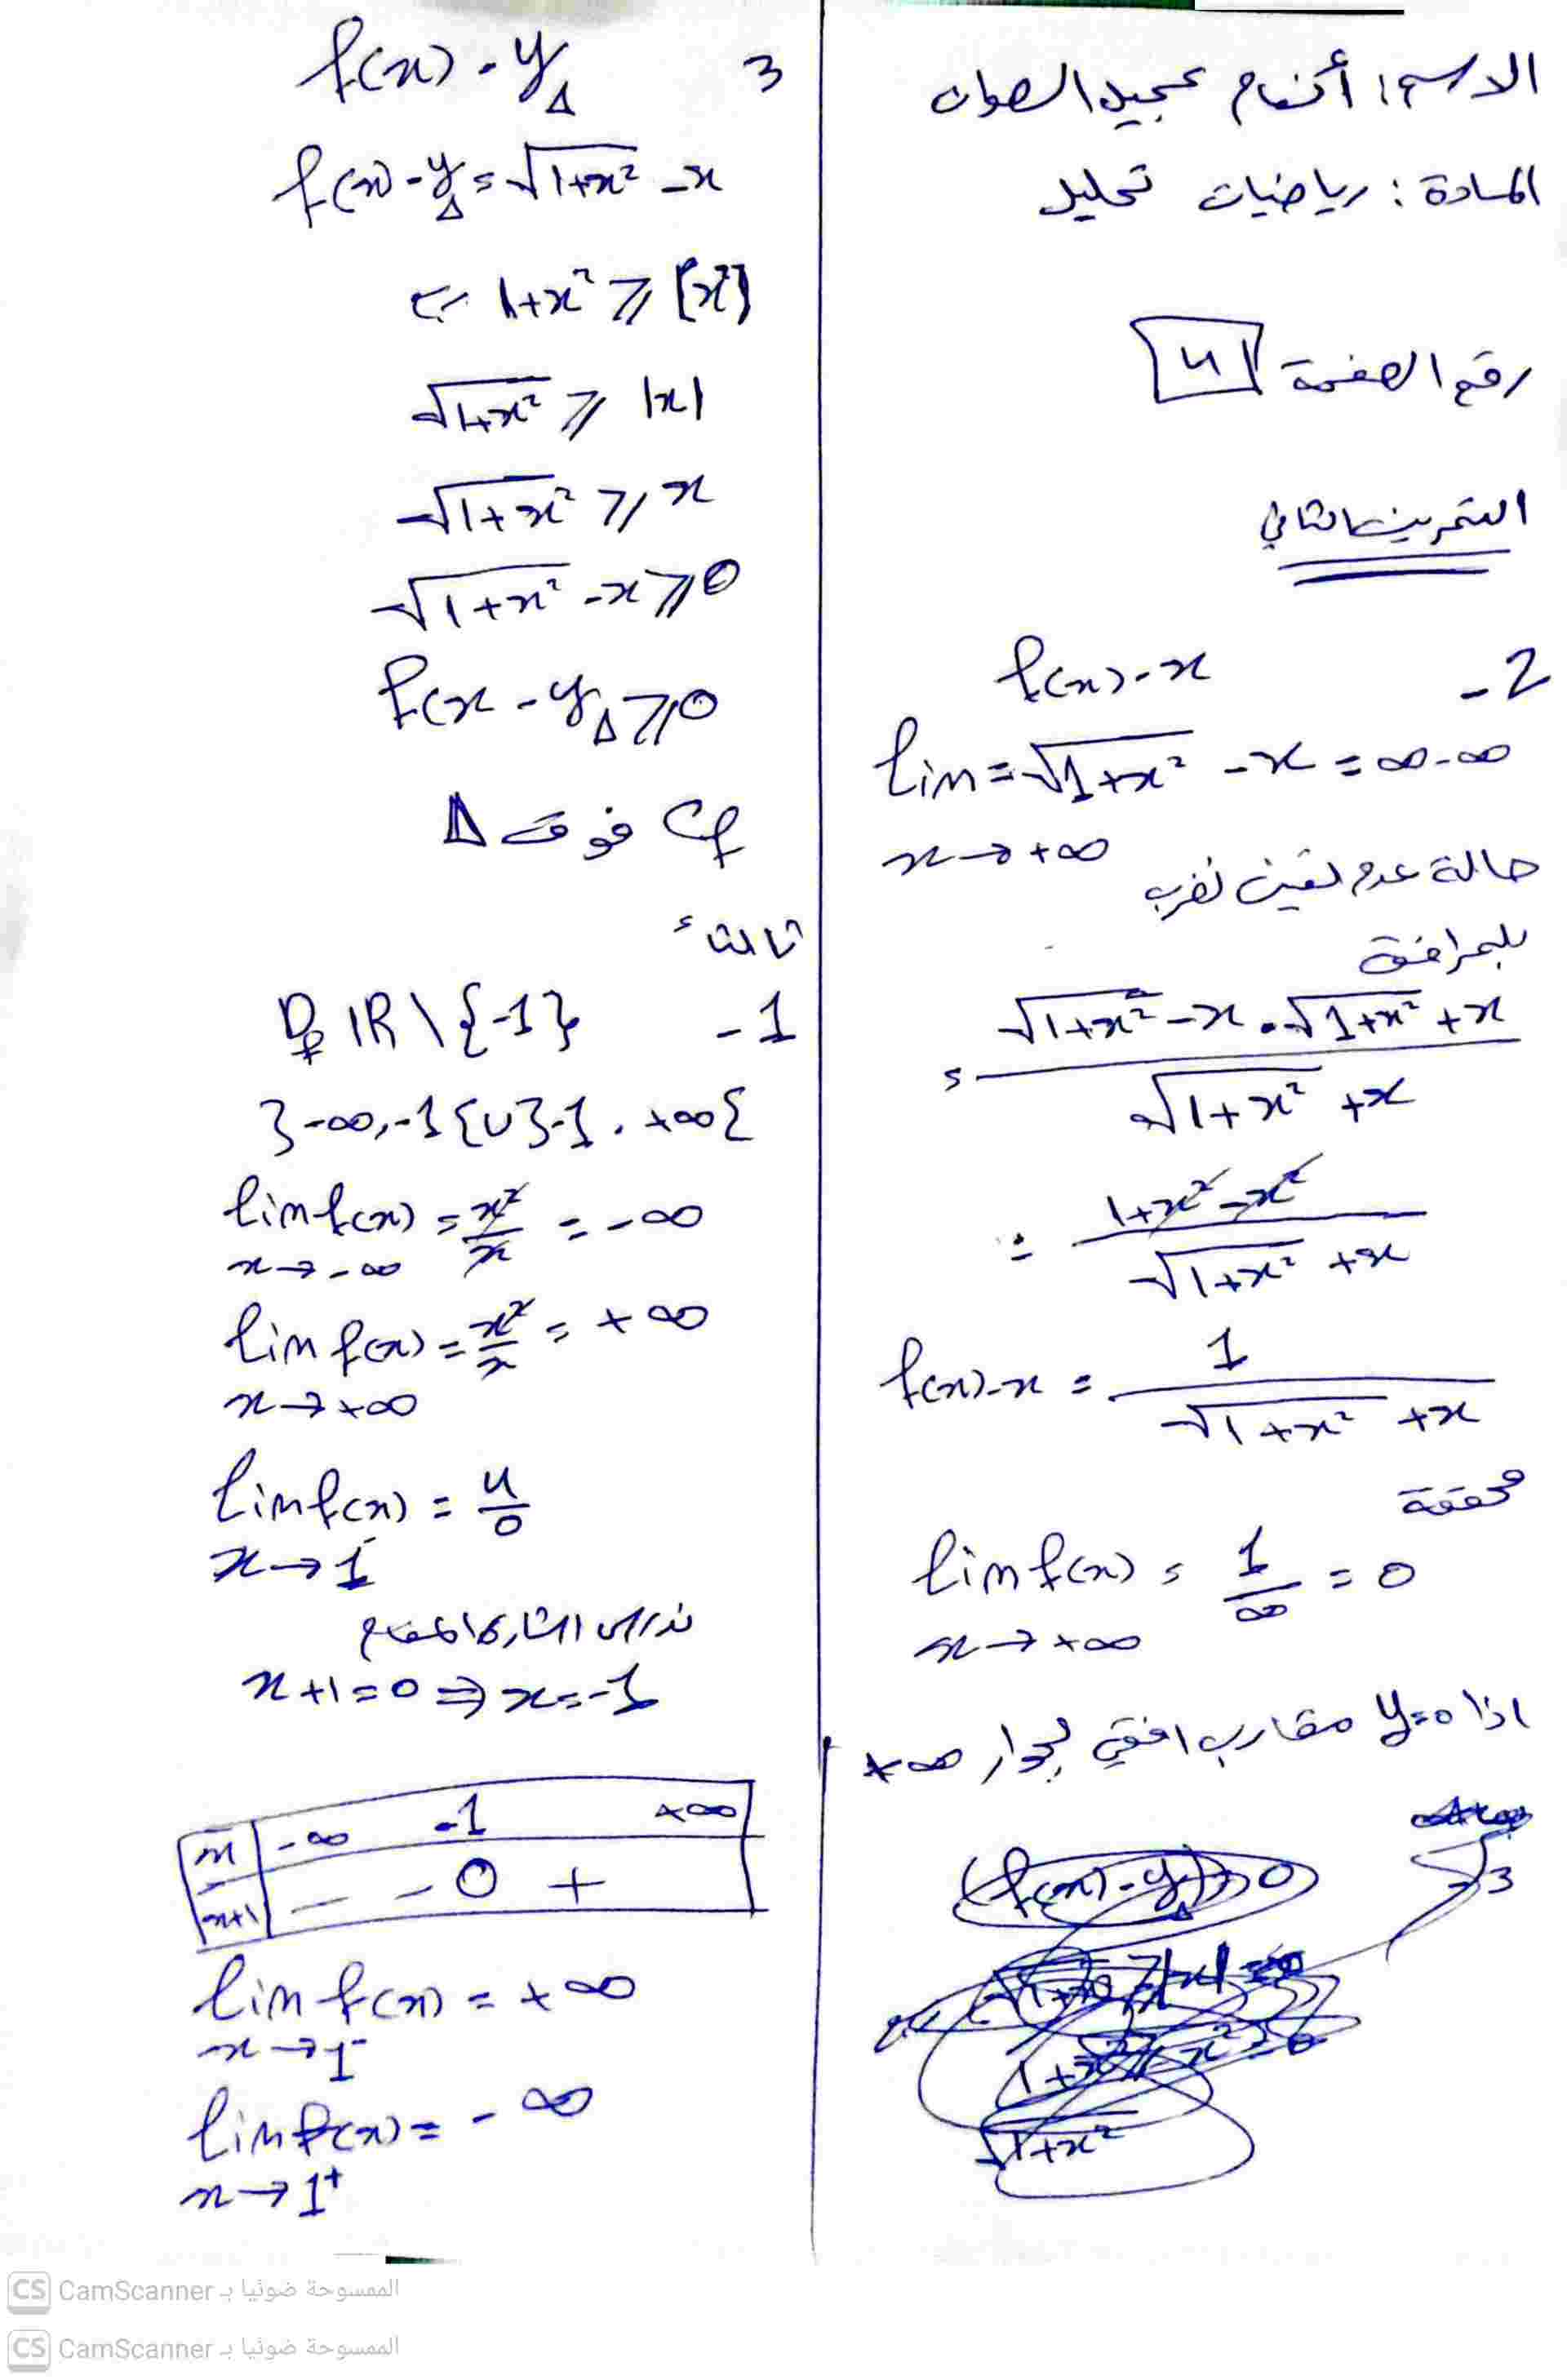 الاسم: أنغام عجيل الصوان
المادة: رياضيات تحليل
رقم الصفحة 4
التمرين الثاني
2- f(x)-x
lim = √1+x² -x = ∞-∞
x→+∞
حالة عدم تعين نضرب
بلمرافق
= √1+x² -x . √1+x² +x
√1+x² +x
= 1+x²-x²
√1+x² +x
f(x)-x = 1
√1+x² +x
محققة
lim f(x) = 1/∞ = 0
x→+∞
اذا y=0 مقارب افقي بجوار +∞
3 f(x)-y∆
f(x)-y∆ = √1+x² -x
1+x² ⩾ [x²]
√1+x² ⩾ |x|
√1+x² ⩾ x
√1+x² -x ⩾ 0
f(x -y∆ ⩾ 0
Cf فوق ∆
ثالثاً
1- Df IR\{-1}
}-∞,-1{U}-1,+∞{
lim f(x) = x²/x = -∞
x→-∞
lim f(x) = x²/x = +∞
x→+∞
lim f(x) = 4/0
x→1
ندرس اشارة المقام
x+1=0 ⇒ x=-1
x -∞ -1 +∞
x+1 - - 0 +
lim f(x) = +∞
x→1⁻
lim f(x) = -∞
x→1⁺
CS CamScanner الممسوحة ضوئيا بـ
CS CamScanner الممسوحة ضوئيا بـ